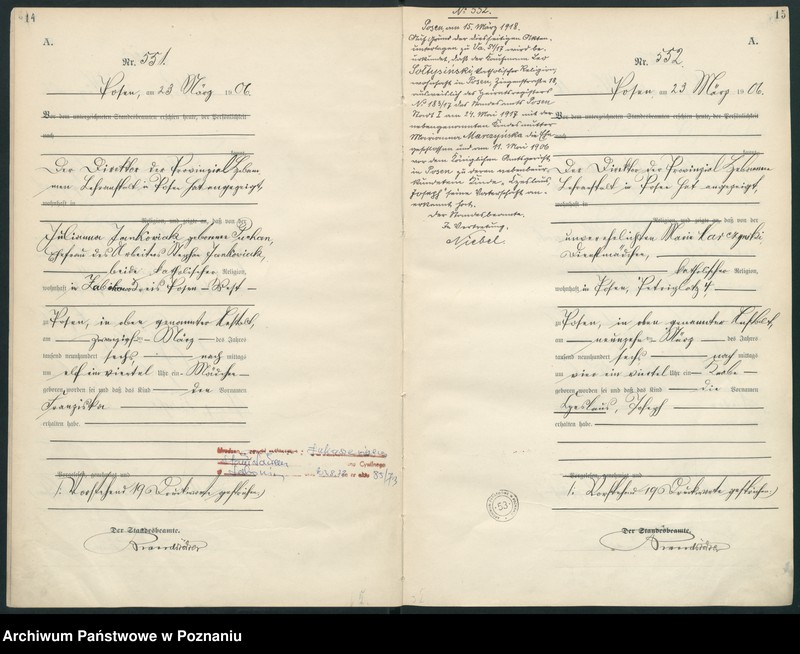 14
A.
Nr. 551.
Posen, am 23 März 1906.
Vor dem unterzeichneten Standesbeamten erschien heute, der Persönlichkeit
nach
kannt,
Der Direktor der Provinzial Hebam-
men Lehranstalt in Posen hat angezeigt,
wohnhaft in
Religion, und zeigte an, daß von der
Julianna Jankowiak geborene
Ehefrau des Arbeiters Jankowiak,
beide katholischer Religion,
wohnhaft in Kreis Posen-West
zu Posen, in oben genannter Anstalt,
am zwanzigsten März des Jahres
tausend neunhundert sechs nach mittags
um elf ein viertel Uhr ein Mädchen
geboren worden sei und daß das Kind den Vornamen
Franziska
erhalten habe.
Vorgelesen, genehmigt und
/: Vorstehend 19 Druckworte gestrichen :/
Der Standesbeamte.
Cywilnego
85/73
15
A.
No 552.
Posen, am 15. März 1918.
Auf Grund der diesseitigen Akten-
unterlagen zu Va. wird be-
urkundet, daß der Kaufmann Leo
Sołtysiński, katholischer Religion,
wohnhaft in Posen, 18,
ausweislich des Heiratsregisters
No 183/17 des Standesamts Posen
Stadt I am 24. Mai 1917 mit der
nebengenannten Kindesmutter
Marianna Marczyńska die Ehe
geschlossen und am 11. Mai 1906
vor dem Königlichen Amtsgericht
in Posen zu deren nebenbeur-
kundeten Kinde,
Joseph seine Vaterschaft an-
erkannt hat.
Der Standesbeamte.
In Vertretung.
Niebel
Nr. 552
Posen, am 23 März 1906.
Vor dem unterzeichneten Standesbeamten erschien heute, der Persönlichkeit
nach
kannt,
Der Direktor der Provinzial Hebammen
Lehranstalt in Posen hat angezeigt,
wohnhaft in
Religion, und zeigte an, daß von der
unverehelichten Marie
Dienstmädchen,
katholischer Religion,
wohnhaft in Posen, Petriplatz 4,
zu Posen, in oben genannter Anstalt,
am neunzehn März des Jahres
tausend neunhundert sechs nach mittags
um vier ein viertel Uhr ein Knabe
geboren worden sei und daß das Kind die Vornamen
Joseph
erhalten habe.
Vorgelesen, genehmigt und
/: Vorstehend 19 Druckworte gestrichen :/
Der Standesbeamte.
53
Archiwum Państwowe w Poznaniu